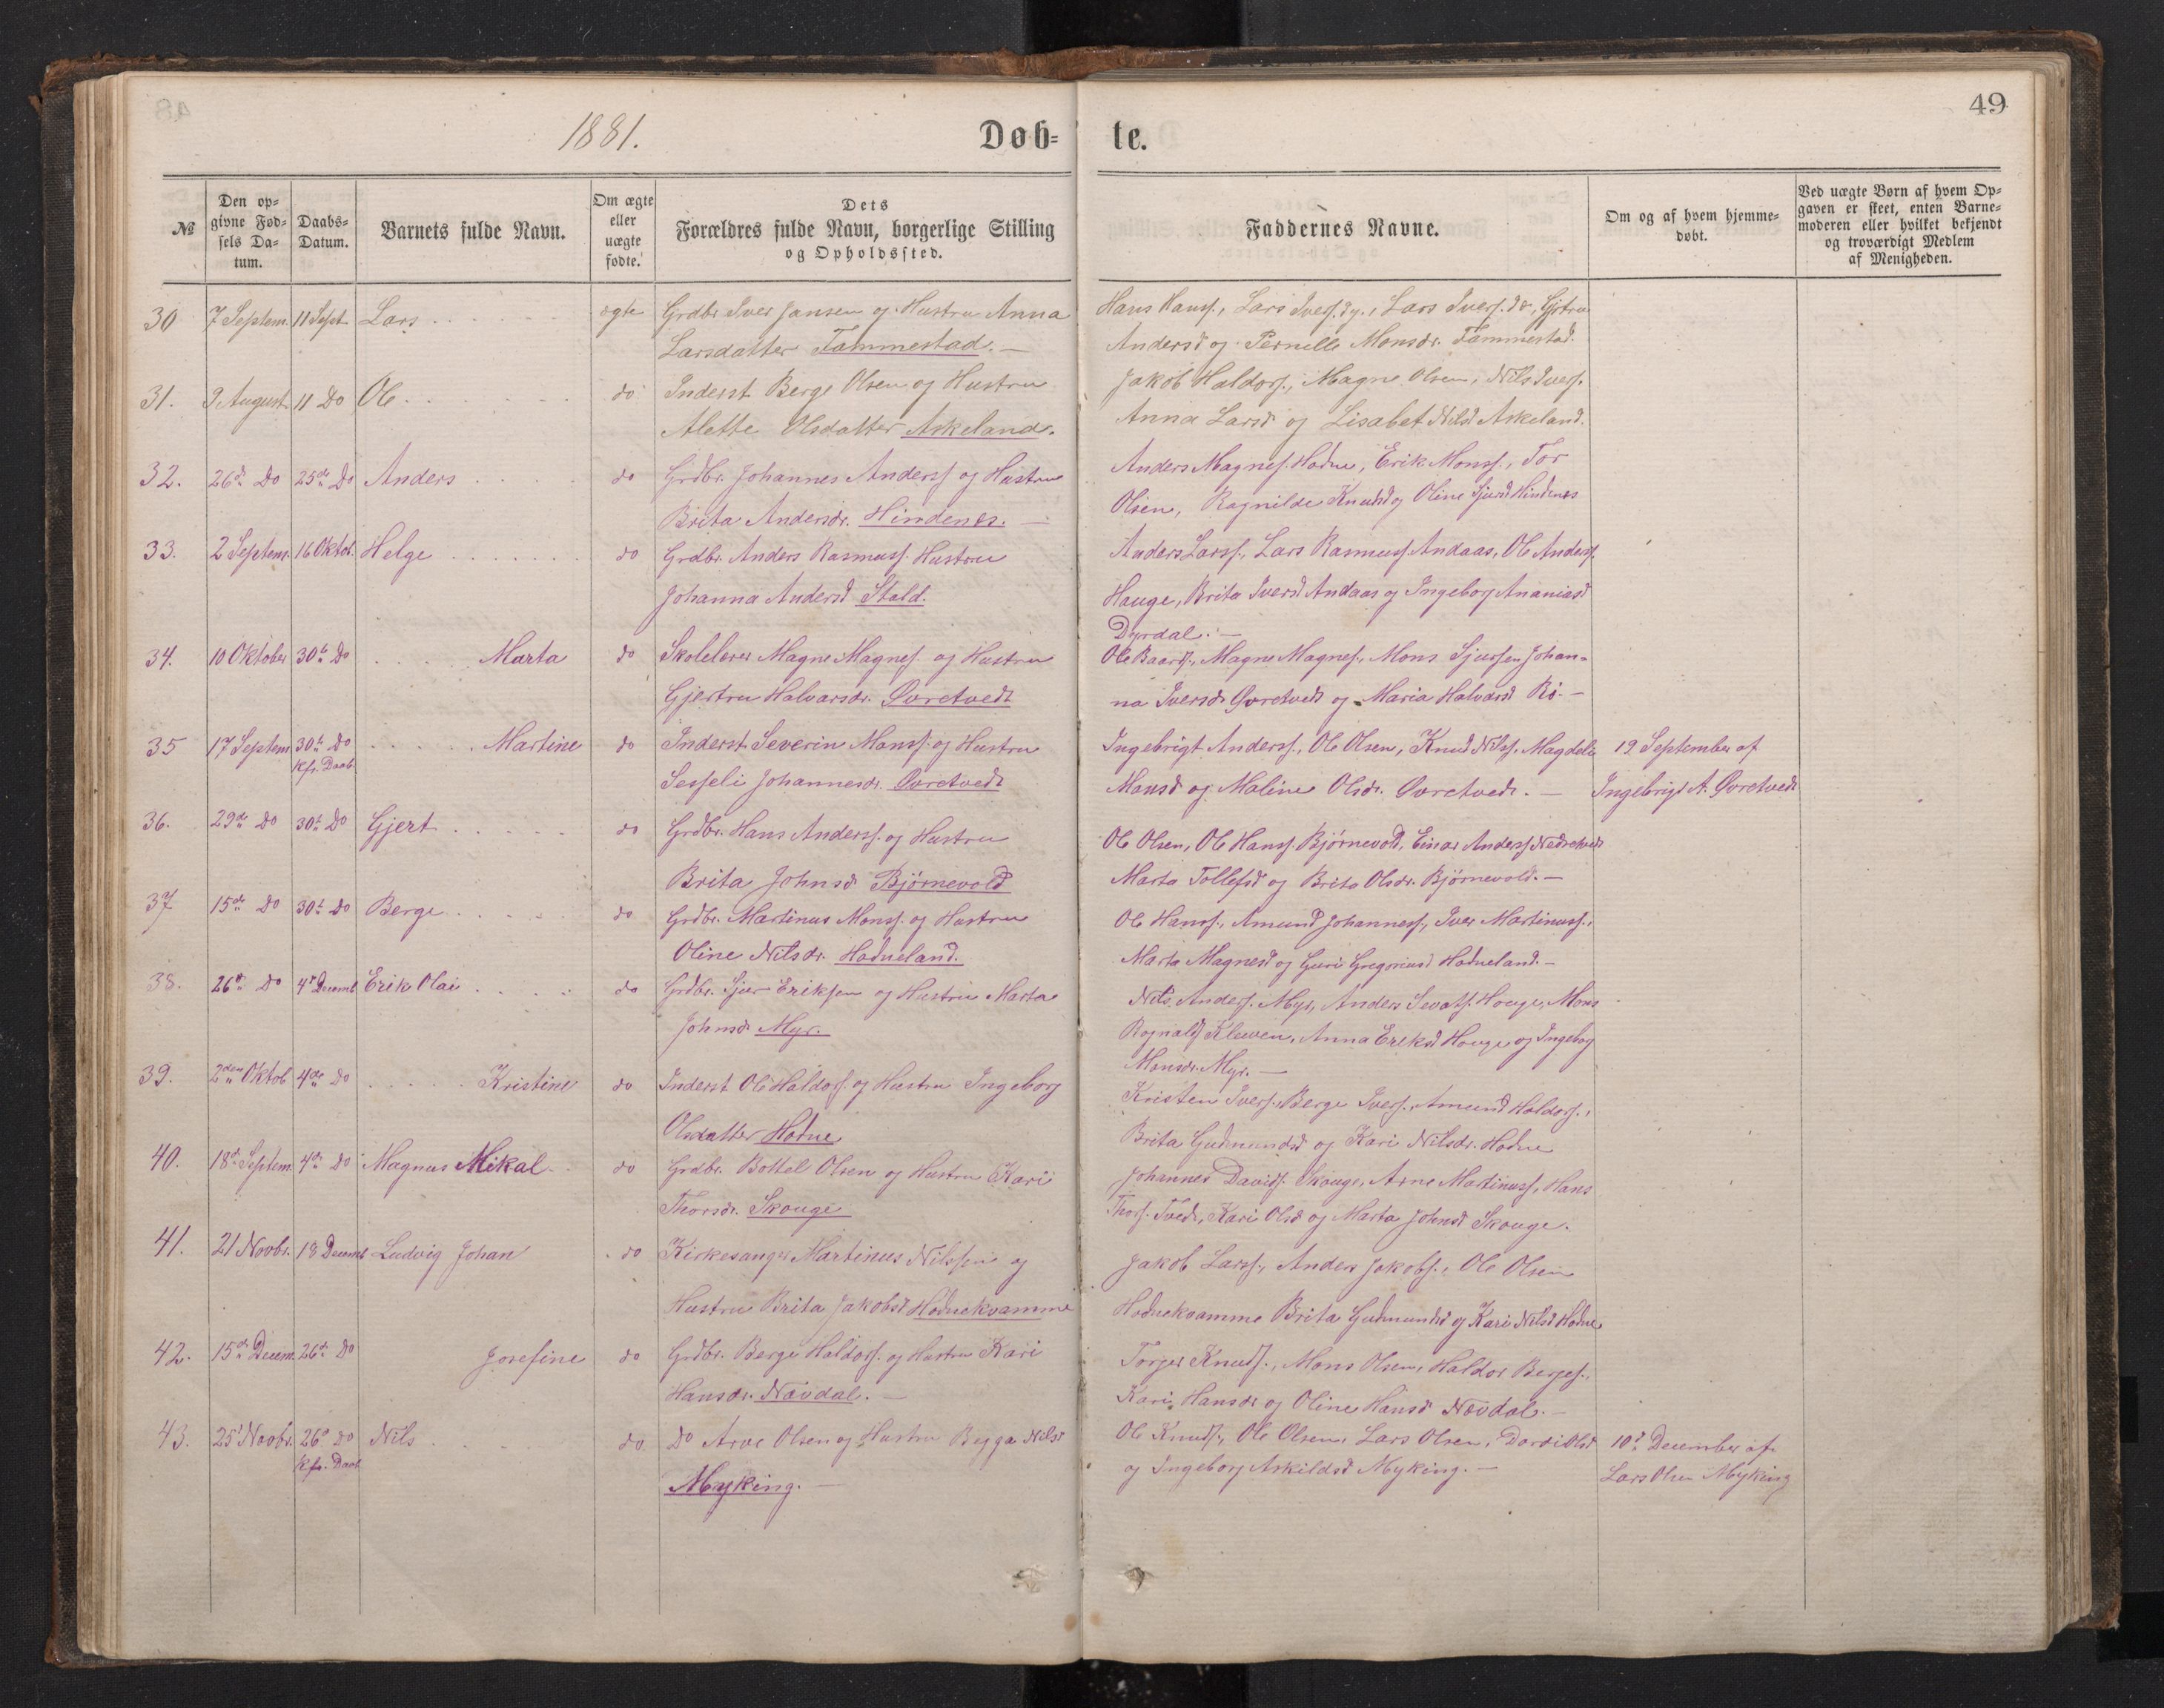 49
1881.
Døb= te.
№
Den op=
givne Fød=
sels Da=
tum.
Daabs=
Datum.
Barnets fulde Navn.
Om ægte
eller
uægte
fødte.
Dets
Forældres fulde Navn, borgerlige Stilling
og Opholdssted.
Faddernes Navne.
Om og af hvem hjemme=
døbt.
Ved uægte Børn af hvem Op=
gaven er skeet, enten Barne=
moderen eller hvilket bekjendt
og troværdigt Medlem
af Menigheden.
30 7 Septem. 11 Sept. Lars ægte Grdbr. Iver Jansen og Hustru Anna
Larsdatter Tammestad. —
Hans Hanss., Lars Iverss. , Lars Iverss. do, Gjertru
Andersd og Pernille Monsdr. Tammestad.
31. 9 August 11 Do Ole do Inderst Berge Olsen og Hustru
Alette Olsdatter Askeland.
Jakob Haldorss., Magne Olsen, Nils Iverss.
Anna Larsd og Lisabet Nilsd Askeland.
32. 26d. Do 25de Do Anders do Grdbr. Johannes Anderss og Hustru
Brita Andersdr. Hindenes. —
Anders Magness. Hodne, Erik Monss., Tor
Olsen, Ragnilde Knudsd og Oline Sjursd Hindenes
33. 2 Septem. 16 Oktob. Helge do Grdbr. Anders Rasmuss. Hustru
Johanna Andersd Stald.
Anders Larss., Lars Rasmuss. Andaas, Ole Anderss.
Hauge, Brita Iversd Andaas og Ingeborg Ananiasd
Dyrdal. —
34. 10 Oktober 30te Do Marta do Skolelærer Magne Magness. og Hustru
Gjertru Halvarsdr. Øvretvedt
Ole Baards., Magne Magness., Mons Sjursen, Johan=
na Iversdr Øvretvedt og Maria Halvarsd Rø. —
35 17 Septem 30te Do Martine do Inderst Severin Monss. og Hustru
Kfr. Daab.
Sesseli Johannesdr. Øvretvedt
Ingebrigt Anderss., Ole Olsen, Knud Nilss. Magdeli
Monsd og Maline Olsdr. Øvretvedt. —
19 September af
Ingebrigt A. Øvretvedt
36. 29de Do 30te Do Gjert do Grdbr. Hans Anderss. og Hustru
Brita Johnsd Bjørnevold
Ole Olsen, Ole Hanss. Bjørnevold, Einar Anderss Nedretvedt
Marta Tollefsd og Brita Olsdr. Bjørnevold. —
37 15de Do 30te Do Berge do Grdbr. Martinus Monss. og Hustru
Oline Nilsdr. Hodneland.
Ole Hanss., Amund Johanness., Iver Martinuss.,
Marta Magnesd og Guri Gregoriusd Hodneland. —
38. 26de Do 4de Decemb Erik Olai do Grdbr. Sjur Eriksen og Hustru Marta
Johnsd Myr.
Nils Anderss. Myr, Anders Hauge, Mons
Rognalds Kleven, Anna Eriksd Hauge og Ingeborg
Monsdr. Myr. —
39. 2den Oktob 4de Do Kristine do Inderst Ole Haldorss. og Hustru Ingeborg
Olsdatter Hodne
Kristen Iverss., Berge Iverss., Amund Haldorss.,
Brita Gudmundsd og Kari Nilsdr. Hodne
40. 18d. Septem. 4de Do Magnus Mikal do Grdbr. Bottel Olsen og Hustru Kari
Thorsdr. Skouge
Johannes Davids. Skouge, Arne Martinuss., Hans
Thorss. Tvedt, Kari Olsd og Marta Johnsd Skouge.
41. 21 Novbr. 18 Decemb Ludvig Johan do Kirkesanger Martinus Nilssen og
Hustru Brita Jakobsd Hodnekvamme
Jakob Larss., Anders Jakobs., Ole Olsen
Hodnekvamme Brita Gudmundsd og Kari Nilsd Hodne
42. 15de Decem. 26de Do Josefine do Grdbr. Berge Haldorss. og Hustru Kari
Hansdr. Nævdal. —
Torger Knuds., Mons Olsen, Haldor Berges.,
Kari Hansdr og Oline Hansd Nævdal. —
43. 25d Novbr. 26d Do Nils do Do Arve Olsen og Hustru Begga Nilsd
Kfr. Daab
Myking. —
Ole Knuds., Ole Olsen, Lars Olsen, Dordi Olsd
og Ingeborg Askildsd Myking. —
10d December af
Lars Olsen Myking